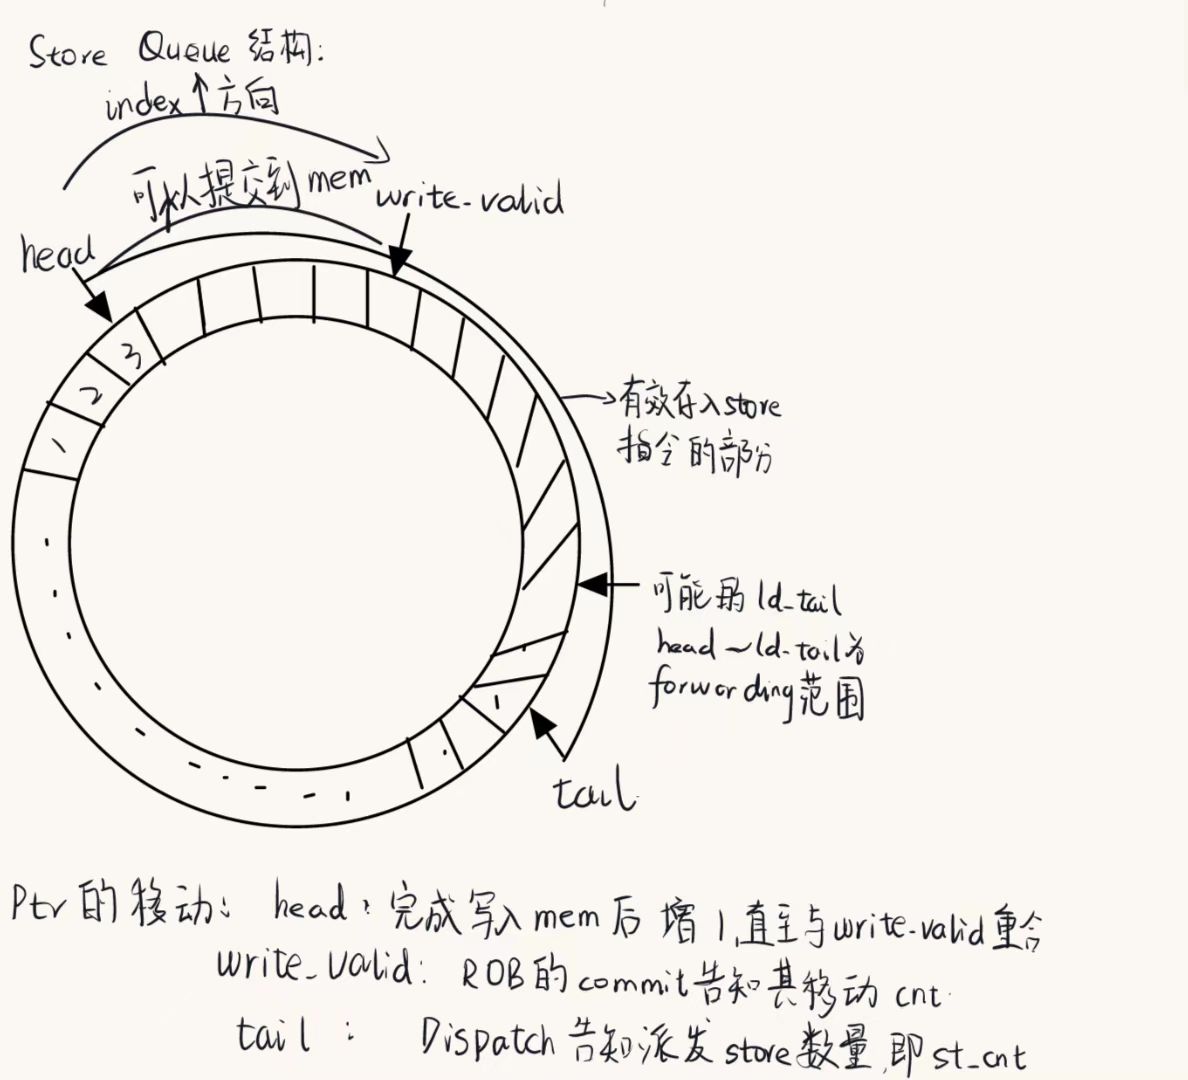 Store Queue 结构:
index↑方向
可以提交到 mem
write_valid
head
3
2
1
有效存入store
指令的部分
可能的 ld_tail
head ~ ld_tail为
forwarding范围
tail
Ptr 的移动: head: 完成写入mem后 增1,直至与write_valid重合
write_valid: ROB的commit告知其移动 cnt.
tail : Dispatch 告知派发 store数量,即 st_cnt